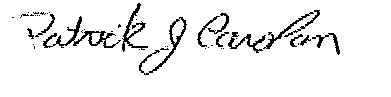 Patrick J Carolan